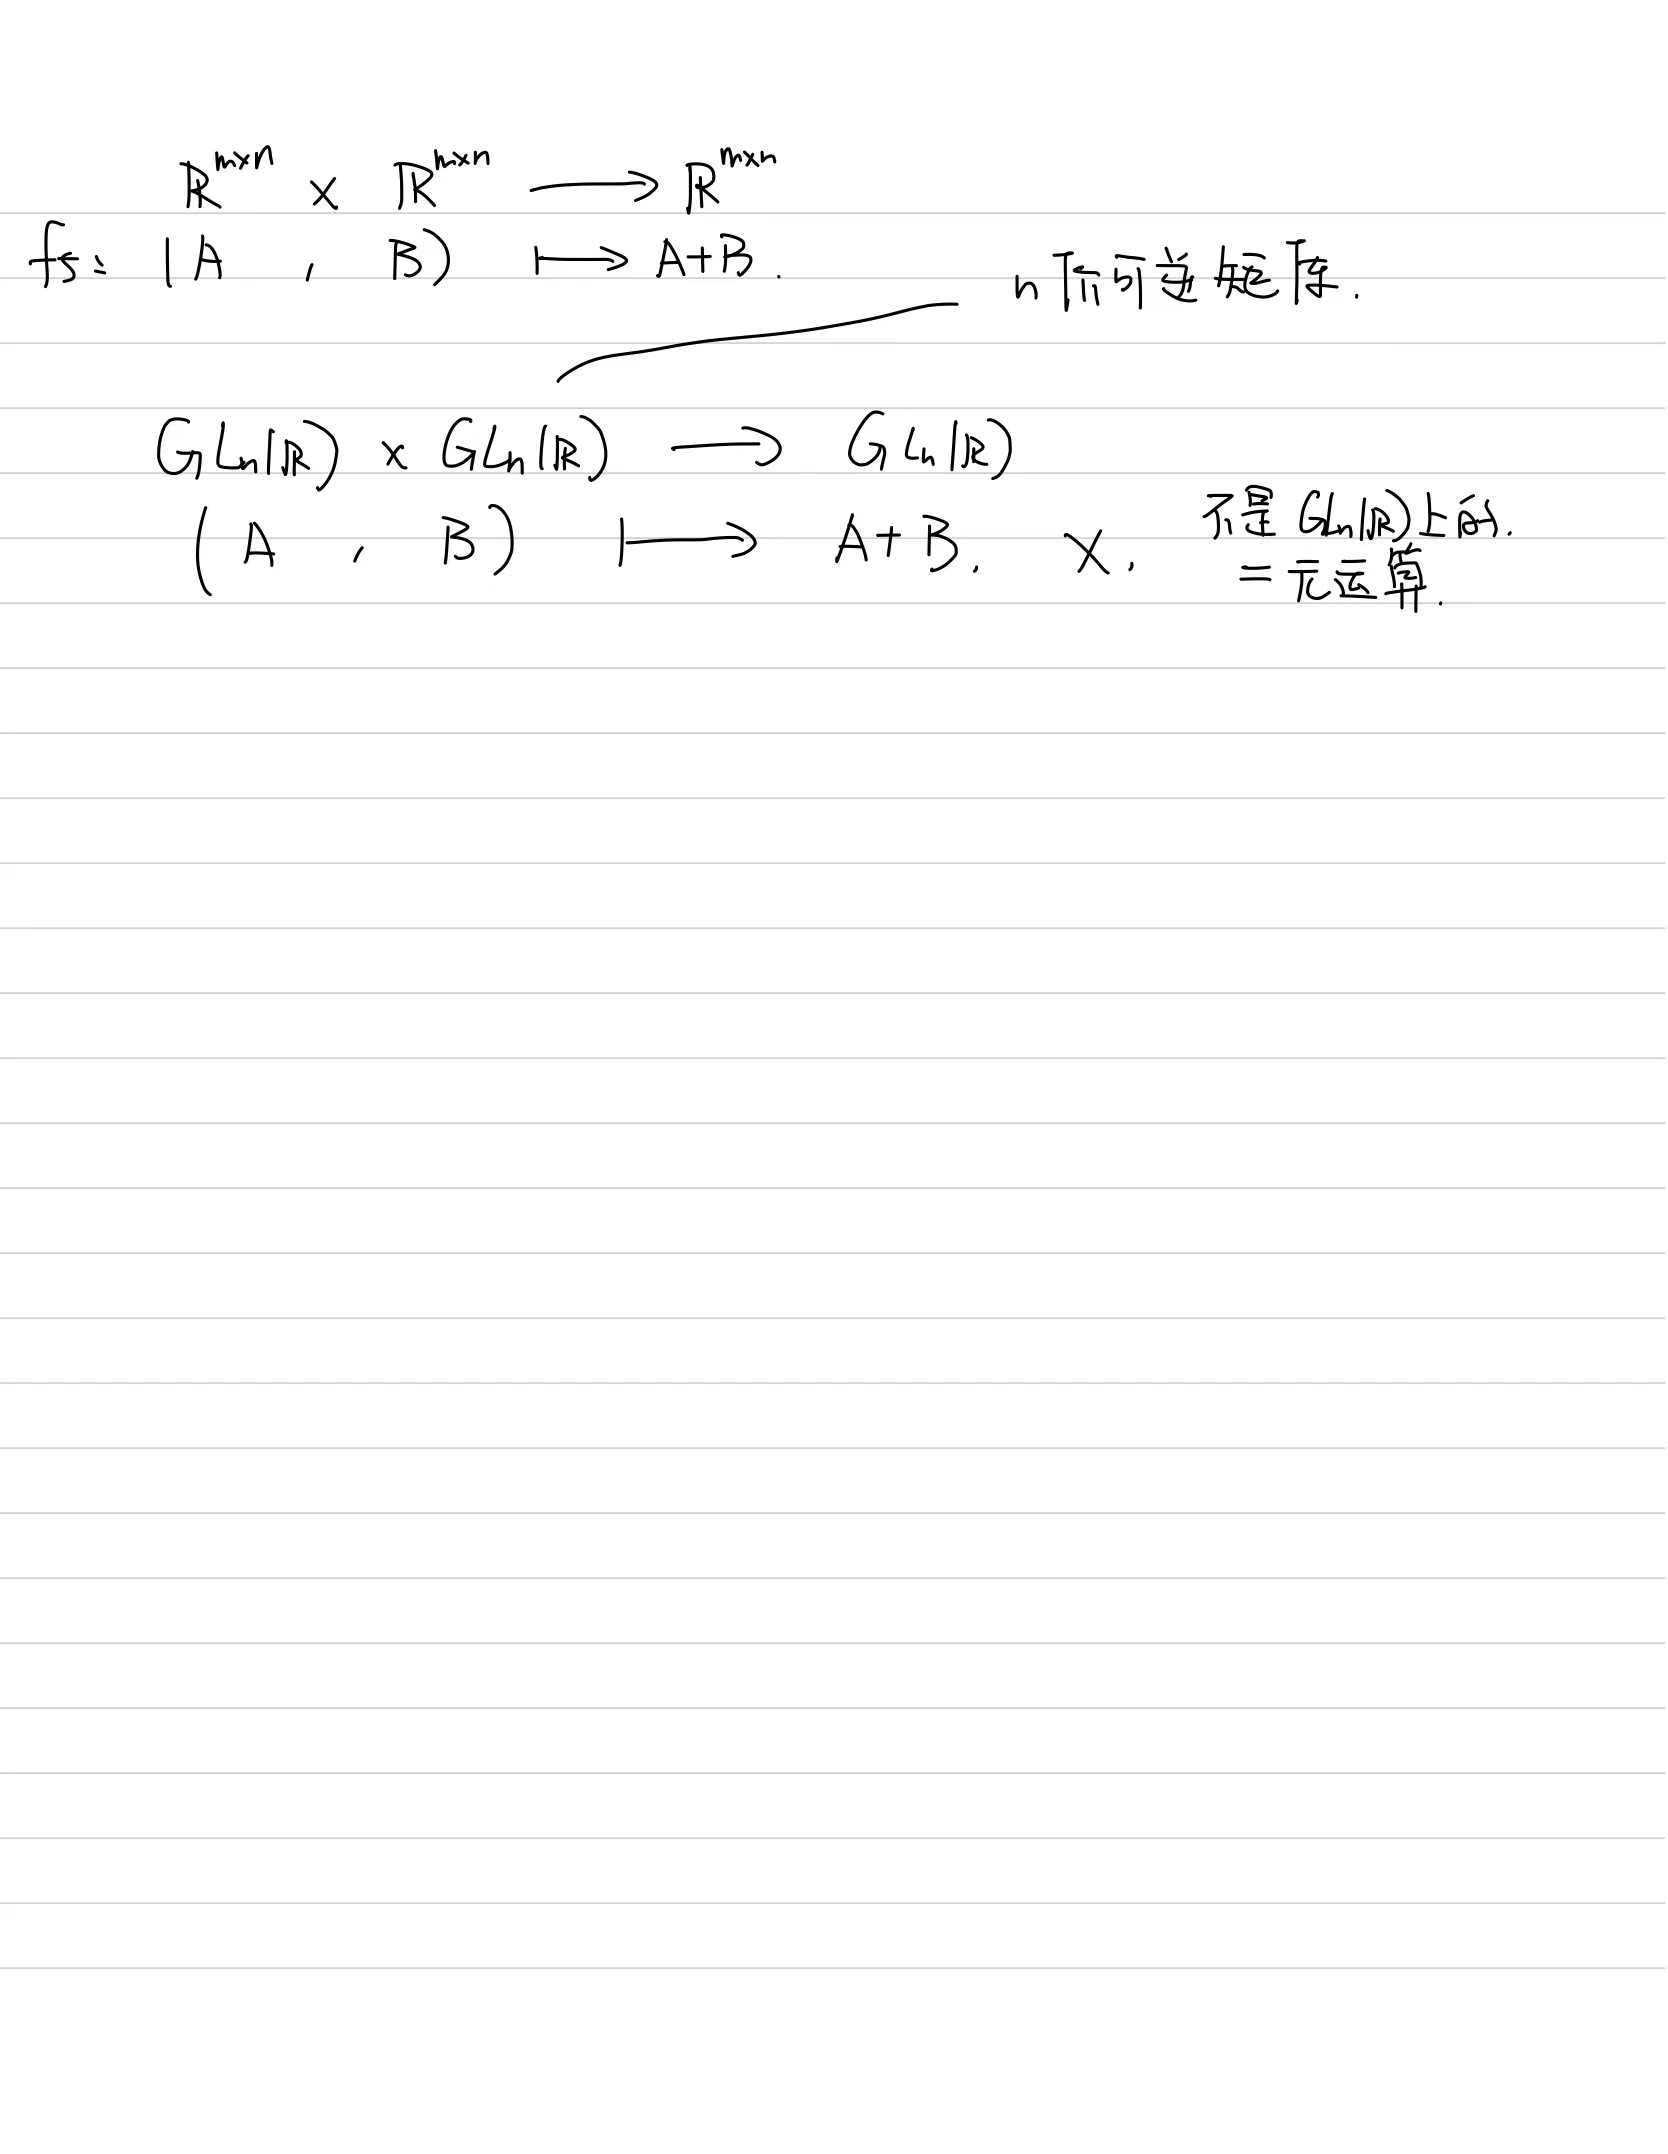 ℝ^{m×n} × ℝ^{m×n} ⟶ ℝ^{m×n}
f₅: (A , B) ⟼ A+B.
n阶可逆矩阵.
GLₙ(ℝ) × GLₙ(ℝ) ⟶ GLₙ(ℝ)
(A , B) ⟼ A+B. ×. 不是GLₙ(ℝ)上的.
二元运算.